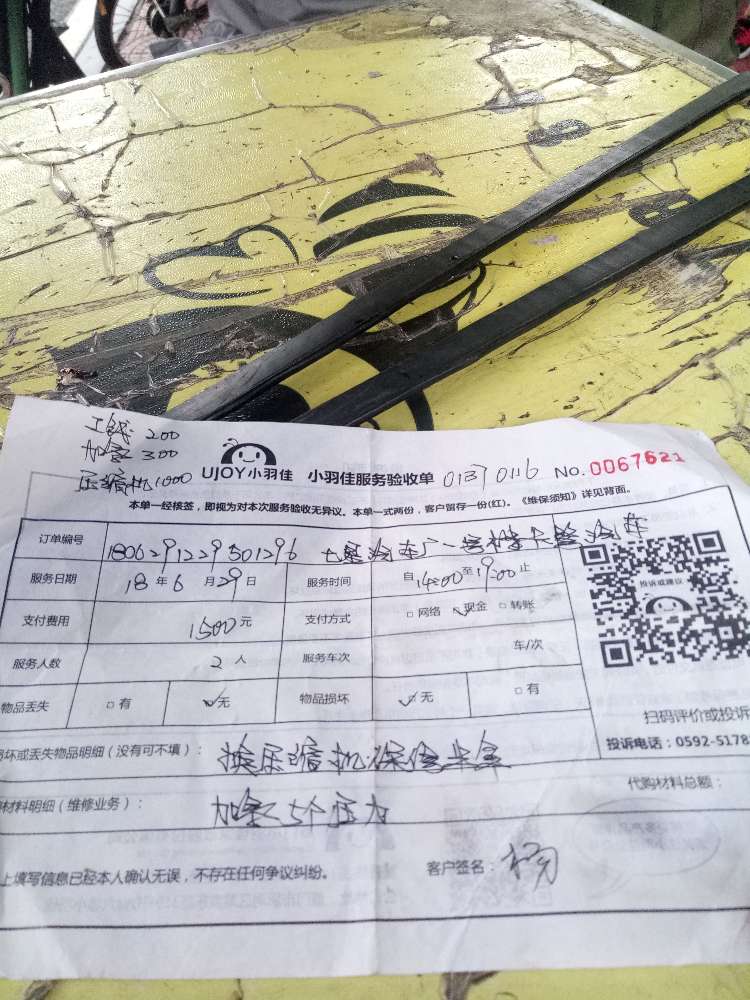 工钱 200
加氟 300
压缩机 1000
UJOY小羽佳 小羽佳服务验收单 01370116 NO.0067621
本单一经核签，即视为对本次服务验收无异议。本单一式两份，客户留存一份(红)。《维保须知》详见背面。
订单编号 180629122950 1296
服务日期 18 年 6 月 29 日 服务时间 自 14:00 至 19:00 止
投诉或建议
支付费用 1500 元 支付方式 网络 现金 转账
服务人数 2 人 服务车次 车/次
物品丢失 有 无 物品损坏 无 有
扫码评价或投诉
损坏或丢失物品明细（没有可不填）： 换压缩机保修半年
投诉电话：0592-5178
代购材料总额：
材料明细（维修业务）： 加氟 5个压力
上填写信息已经本人确认无误，不存在任何争议纠纷。 客户签名： 杨